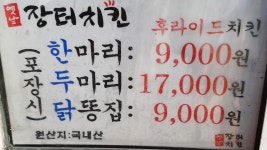 옛날 장터치킨 후라이드치킨
(포장시) 한마리: 9,000원
두마리: 17,000원
닭똥집: 9,000원
원산지:국내산 장터치킨